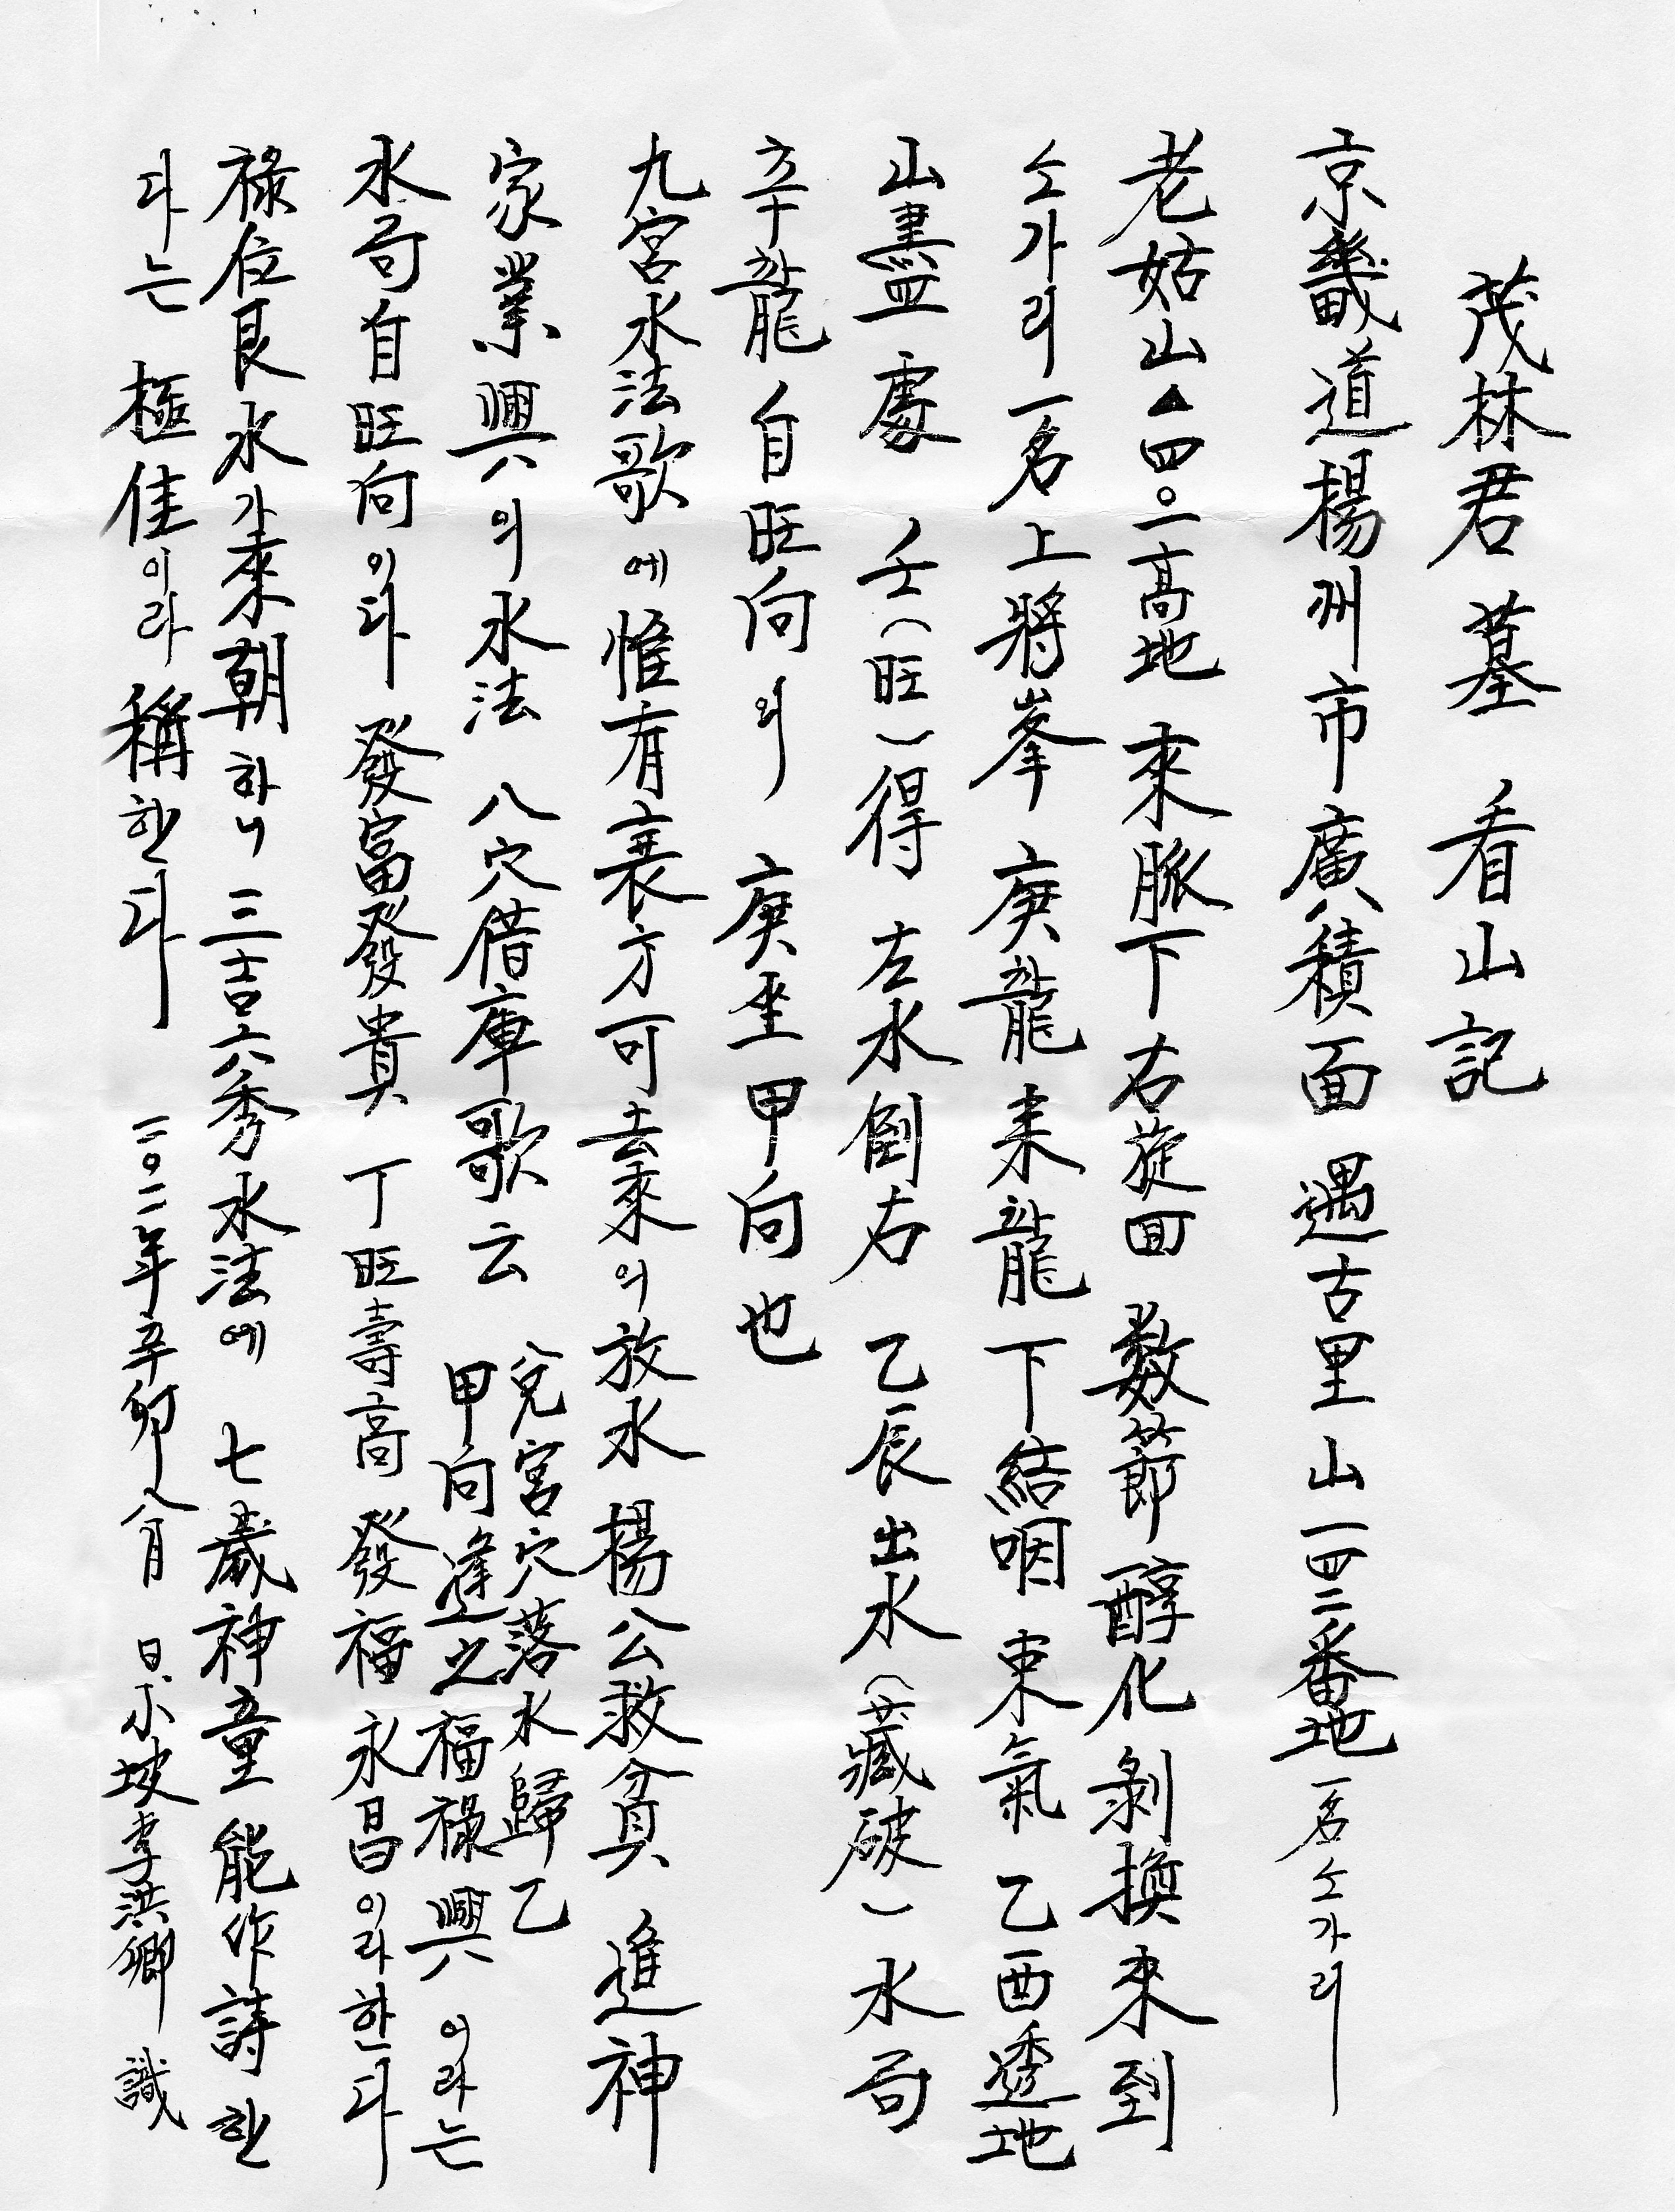 茂林君 墓 看山記
京畿道 楊州市 廣積面 遇古里 山一四二番地 一名 소가리
老姑山▲四〇一高地 來脈下 右旋回 数節 醇化 剝換 來到
소가리 一名 上將峯 庚龍 来龍 下 結咽 束氣 乙酉透地
山盡處 壬(旺)得 左水倒右 乙辰出水(藏破) 水局
辛龍 自旺向의 庚坐甲向也
九宮水法歌에 惟有衰方可去來의 放水 楊公救貧 進神
家業興의 水法 八穴借庫歌云 兌宮穴落水歸乙
甲向逢之福祿興이라는
水局自旺向이다 發富發貴 丁旺壽高 發福永昌이라한다
祿位艮水가 來朝하니 三吉六秀水法에 七歲神童能作詩한
다는 極佳이라 稱한다 二〇一一年 辛卯 八月 日 小坡 李洪卿 識